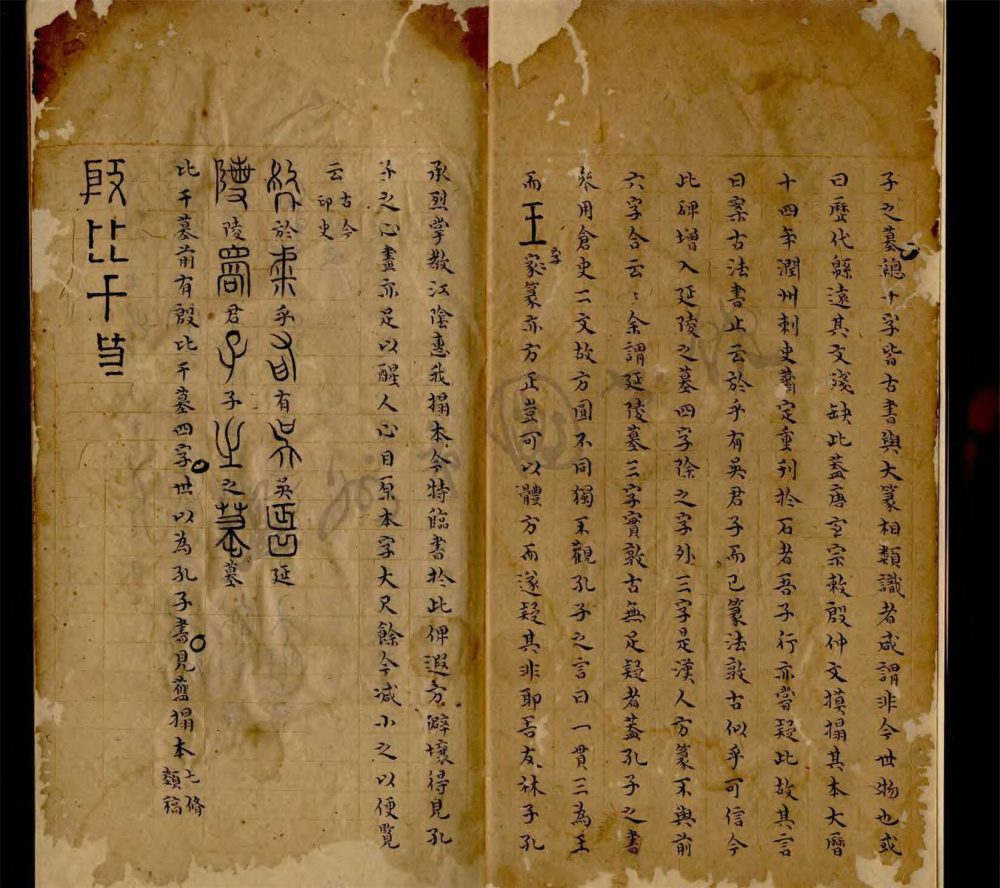 子之墓總十字皆古書與大篆相類識者咸謂非今世物也或
曰歷代緜遠其文殘缺此蓋唐玄宗敕殷仲文摸搨其本大曆
十四年潤州刺史蕭定重刊於石者吾子行亦嘗疑此故其言
曰案古法書止云於乎有吳君子而已篆法敦古似乎可信今
此碑增入延陵之墓四字除之字外三字是漢人方篆不與前
六字合云云余謂延陵墓三字實敦古無足疑者蓋孔子之書
叅用倉史二文故方圓不同獨不觀孔子之言曰一貫三為王
而王字篆亦方正豈可以體方而遂疑其非耶吾友林子孔
承烈掌教江陰惠我搨本今特臨書於此俾遐方僻壤得見孔
子之心畫亦足以醒人心目原本字大尺餘今減小之以便覽
云古今印史
於乎有吳延
陵君子之墓
比干墓前有殷比干墓四字世以為孔子書見舊搨本七脩類稿
殷比干墓